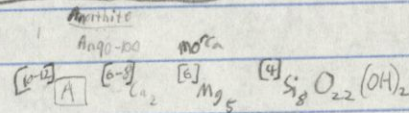 Anorthite
An90-100
[10-12] A [6-8] Ca2 [6] Mg5 [4] Si8 O22 (OH)2